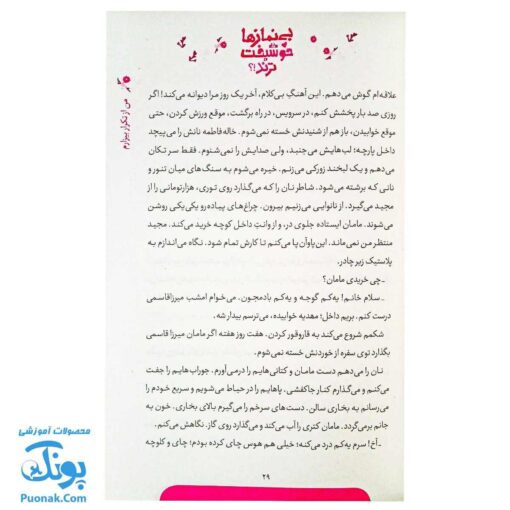 بی‌نمازها
خوشبخت
ترند!؟
من از تکرار بیزارم
علاقه‌ام گوش می‌دهم. این آهنگِ بی‌کلام، آخر یک روز مرا دیوانه می‌کند! اگر
روزی صد بار پخشش کنم، در سرویس، در راه برگشت، موقع ورزش کردن، حتی
موقع خوابیدن، باز هم از شنیدنش خسته نمی‌شوم. خاله‌فاطمه نانش را می‌پیچد
داخل پارچه؛ لب‌هایش می‌جنبد، ولی صدایش را نمی‌شنوم. فقط سر تکان
می‌دهم و یک لبخند زورکی می‌زنم. خیره می‌شوم به سنگ‌های میان تنور و
نانی که برشته می‌شود. شاطر نان را که می‌گذارد روی توری، هزارتومانی را از
مجید می‌گیرد. از نانوایی می‌زنیم بیرون. چراغ‌های پیاده‌رو یکی‌یکی روشن
می‌شوند. مامان ایستاده جلوی در، و از وانتِ داخل کوچه خرید می‌کند. مجید
منتظر من نمی‌ماند. این‌پاوآن‌پا می‌کنم تا کارش تمام شود. نگاه می‌اندازم به
پلاستیک زیر چادر.
ـ چی خریدی مامان؟
ـ سلام خانم! یه‌کم گوجه و یه‌کم بادمجون. می‌خوام امشب میرزاقاسمی
درست کنم. بریم داخل؛ مهدیه خوابیده، می‌ترسم بیدار شه.
شکمم شروع می‌کند به قاروقور کردن. هفت روز هفته اگر مامان میرزا قاسمی
بگذارد توی سفره از خوردنش خسته نمی‌شوم.
نان را می‌دهم دست مامان و کتانی‌هایم را درمی‌آورم. جوراب‌هایم را جفت
می‌کنم و می‌گذارم کنار جاکفشی. پاهایم را در حیاط می‌شویم و سریع خودم را
می‌رسانم به بخاری سالن. دست‌های سرخم را می‌گیرم بالای بخاری. خون به
جانم برمی‌گردد. مامان کتری را آب می‌کند و می‌گذارد روی گاز. نگاهش می‌کنم.
ـ آخ! سرم یه‌کم درد می‌کنه؛ خیلی هم هوس چای کرده بودم؛ چای و کلوچه
۲۹
محصولات آموزشی
پونک
Puonak.Com